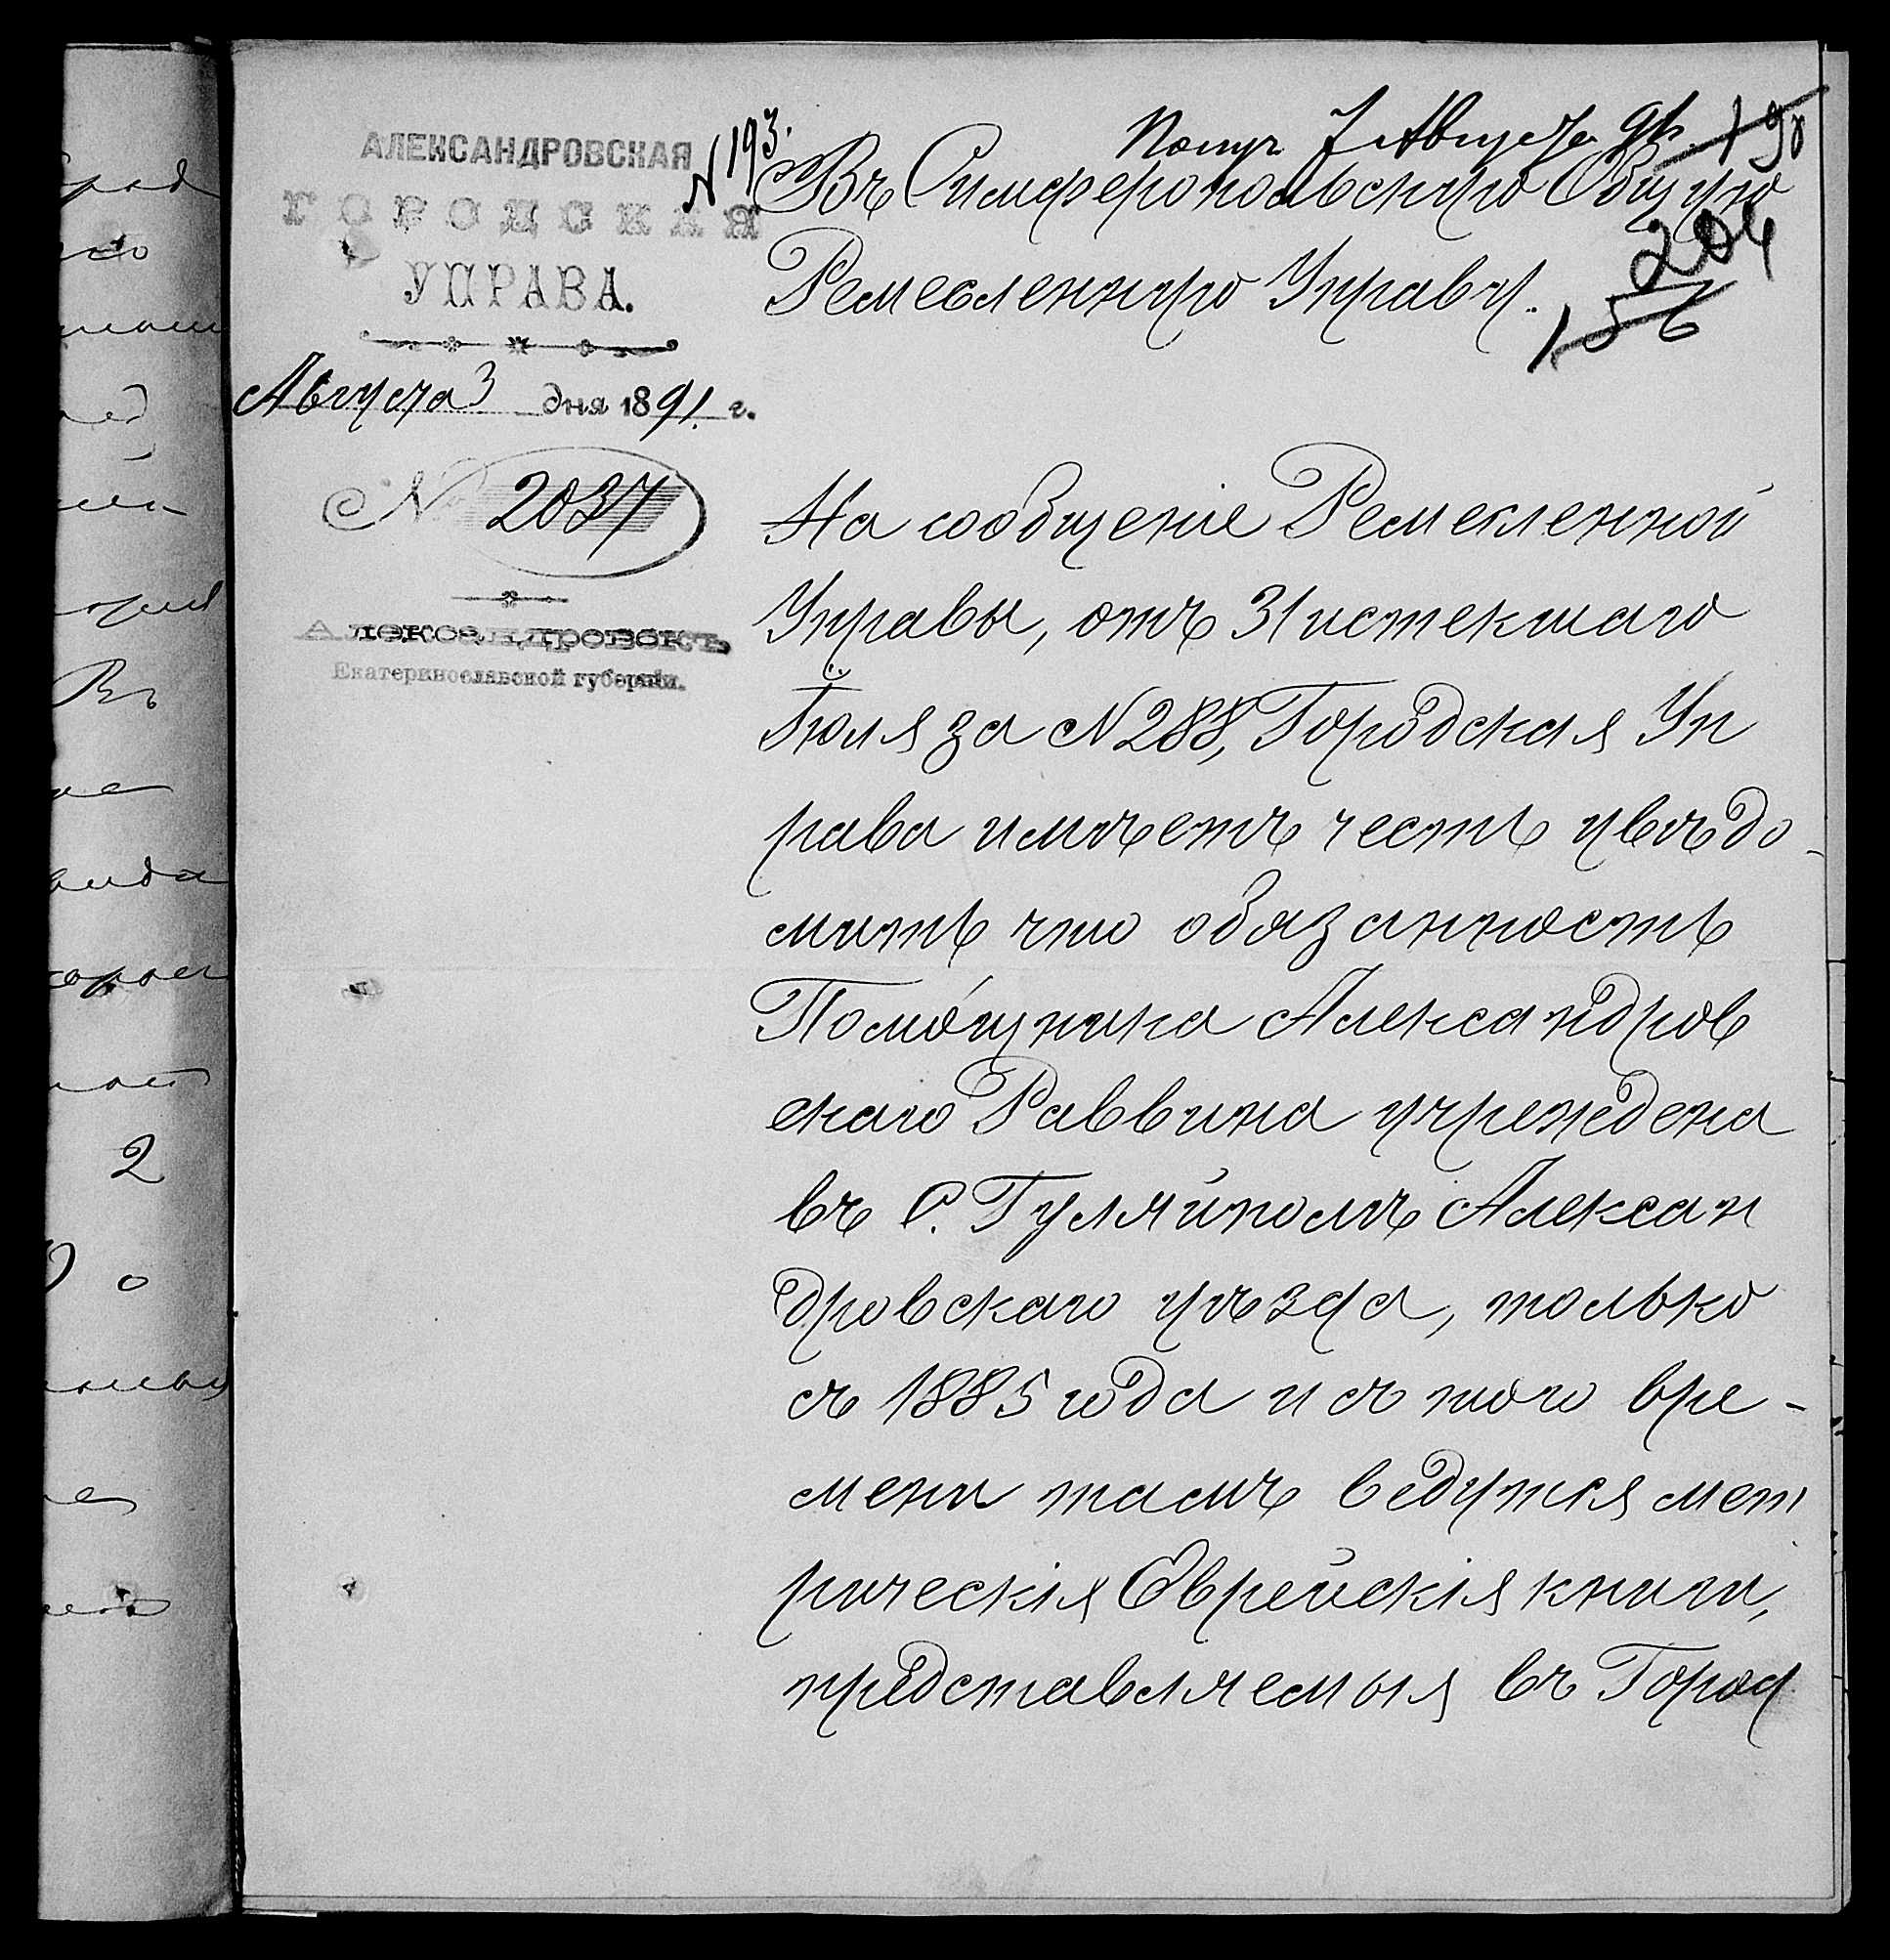 АЛЕКСАНДРОВСКАЯ
ГОРОДСКАЯ
УПРАВА.
Августа 3 дня 1891 г.
№ 2037
АЛЕКСАНДРОВСКЪ,
Екатеринославской губерніи.
N 193.
Получ 7 Августа 91.
190
204
156
Въ Симферопольскую Общую
Ремесленную Управу.
На сообщеніе Ремесленной
Управы, отъ 31 истекшаго
Іюля за N 288, Городская Уп
рава имѣетъ честь увѣдо-
мить что обязанность
Помощника Александров
скаго Раввина учреждена
въ С. Гуляйполѣ Алексан
дровскаго уѣзда, только
съ 1885 года и съ того вре-
мени тамъ ведутся мет
рическія Еврейскія книги,
представляемыя въ Город